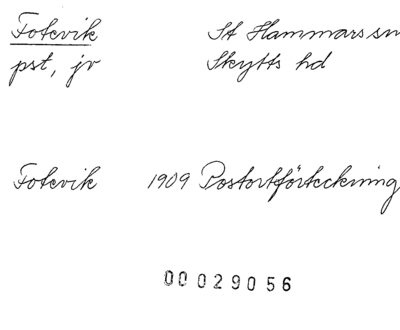 Fotevik St Hammars sn
pst, jv Skytts hd
Fotevik 1909 Postortförteckning
00029056